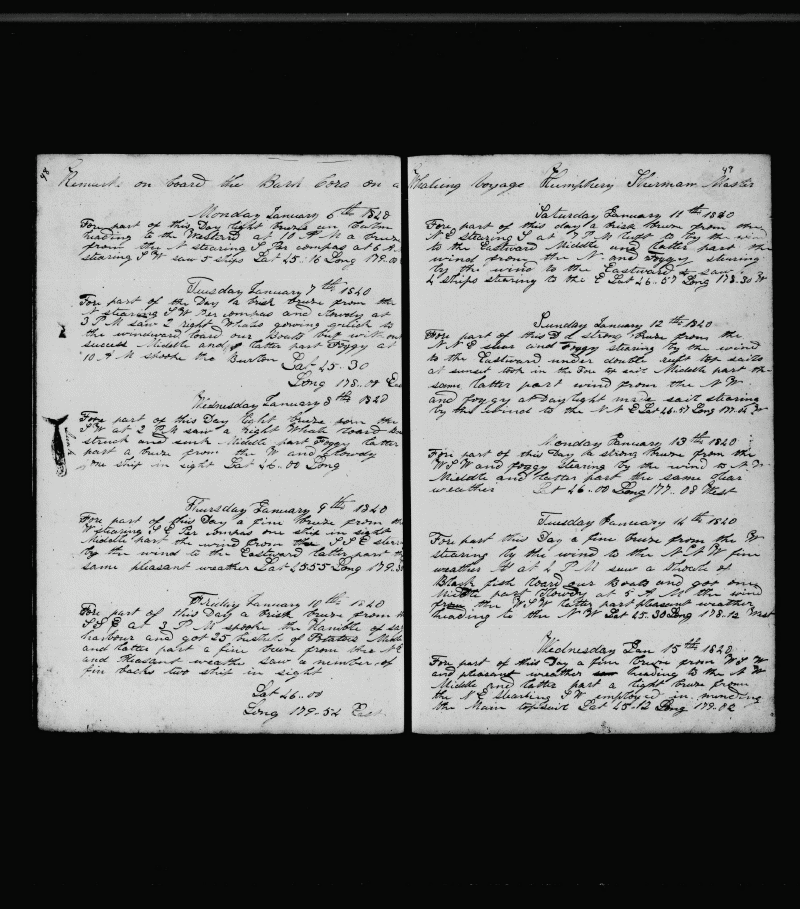 48
Remarks on board the Bark Cora on a
Monday January 6th 1840
Fore part of this Day light breeze
heading to the Westard at 10 A M a breeze
from the N stearing S Per compas at 6 A M
stearing S W saw 5 ships Lat 45.16 Long 179.00
Tuesday January 7th 1840
Fore part of the Day a brisk breeze from the
N stearing S W Per compas and clowdy at
3 P M saw 2 right Whals gowing quick to
the windward loard our Boats but with out
sucsess Middle and latter part Foggy at
10 A M spoke the Burton Lat 45-30
Long 178.19 East
Wednesday January 8th 1840
Fore part of this Day light breeze from the
S W at 2 P M saw a right Whale loard
struck and sunk Middle part Foggy latter
part a breze from the W and Clowdy
one ship in sight Lat 46.00 Long
Thursday January 9th 1840
Fore part of this Day a fine breeze from the
W stearing S E Per compas one ship in sight
Middle part the wind from the S S E stearing
by the wind to the Eastward latter part the
same pleasant weather Lat 45 55 Long 179.3
Friday January 10th 1840
Fore part of this Day a brisk breeze from
S S E at 3 P M spooke the of
harbour and got 25 bushels of Potatoes Middle
and latter part a fine breze from the N E
and Pleasant weathe saw a number of
fin backs two ship in sight
Lat 46.00
Long 179-54 East
49
Whaling Voyage Humphery Shearman Master
Saturday January 11th 1840
Fore part of this day a brisk breeze from the
N E stearing S at 7 P M kept to by the wind
to the Eastward Middle and latter part the
winds from the N and Foggy stearing
by the wind to the Eastward saw
2 ships stearing to the E Lat 46.07 Long 178.30 W
Sunday January 12th 1840
Fore part of this D d strong breeze from the
N N E and Foggy stearing by the wind
to the Eastward under double reeft top sails
at sunset took in the Fore top sail Middle part the
same latter part wind from the N W
and foggy at Day light made sail stearing
by the winds to the N N E Lat 46.51 Long 177.02 W
Monday January 13th 1840
Fore part of this Day a strong breeze from the
W S W and foggy stearing by the wind to N
Middle and latter part the same clear
weather Lat 46.00 Long 177.08 West
Tuesday January 14th 1840
Fore part this Day a fine breeze from the W
stearing by the wind to the N N W fine
weather At 2 P M saw a Shoole of
Black fish loard our Boats and got one
Middle part Clowdy at 5 A M the wind
from the W S W latter part pleasant weather
heading to the N W Lat 45.30 Long 178.12 West
Wednesday Jan 15th 1840
Fore part of this Day a fine breeze from W S W
and pleasant weather heading to the N W
Middle and latter part a light breze from
the N E stearing S W employed in mending
the Main topsail Lat 45-12 Long 179.02